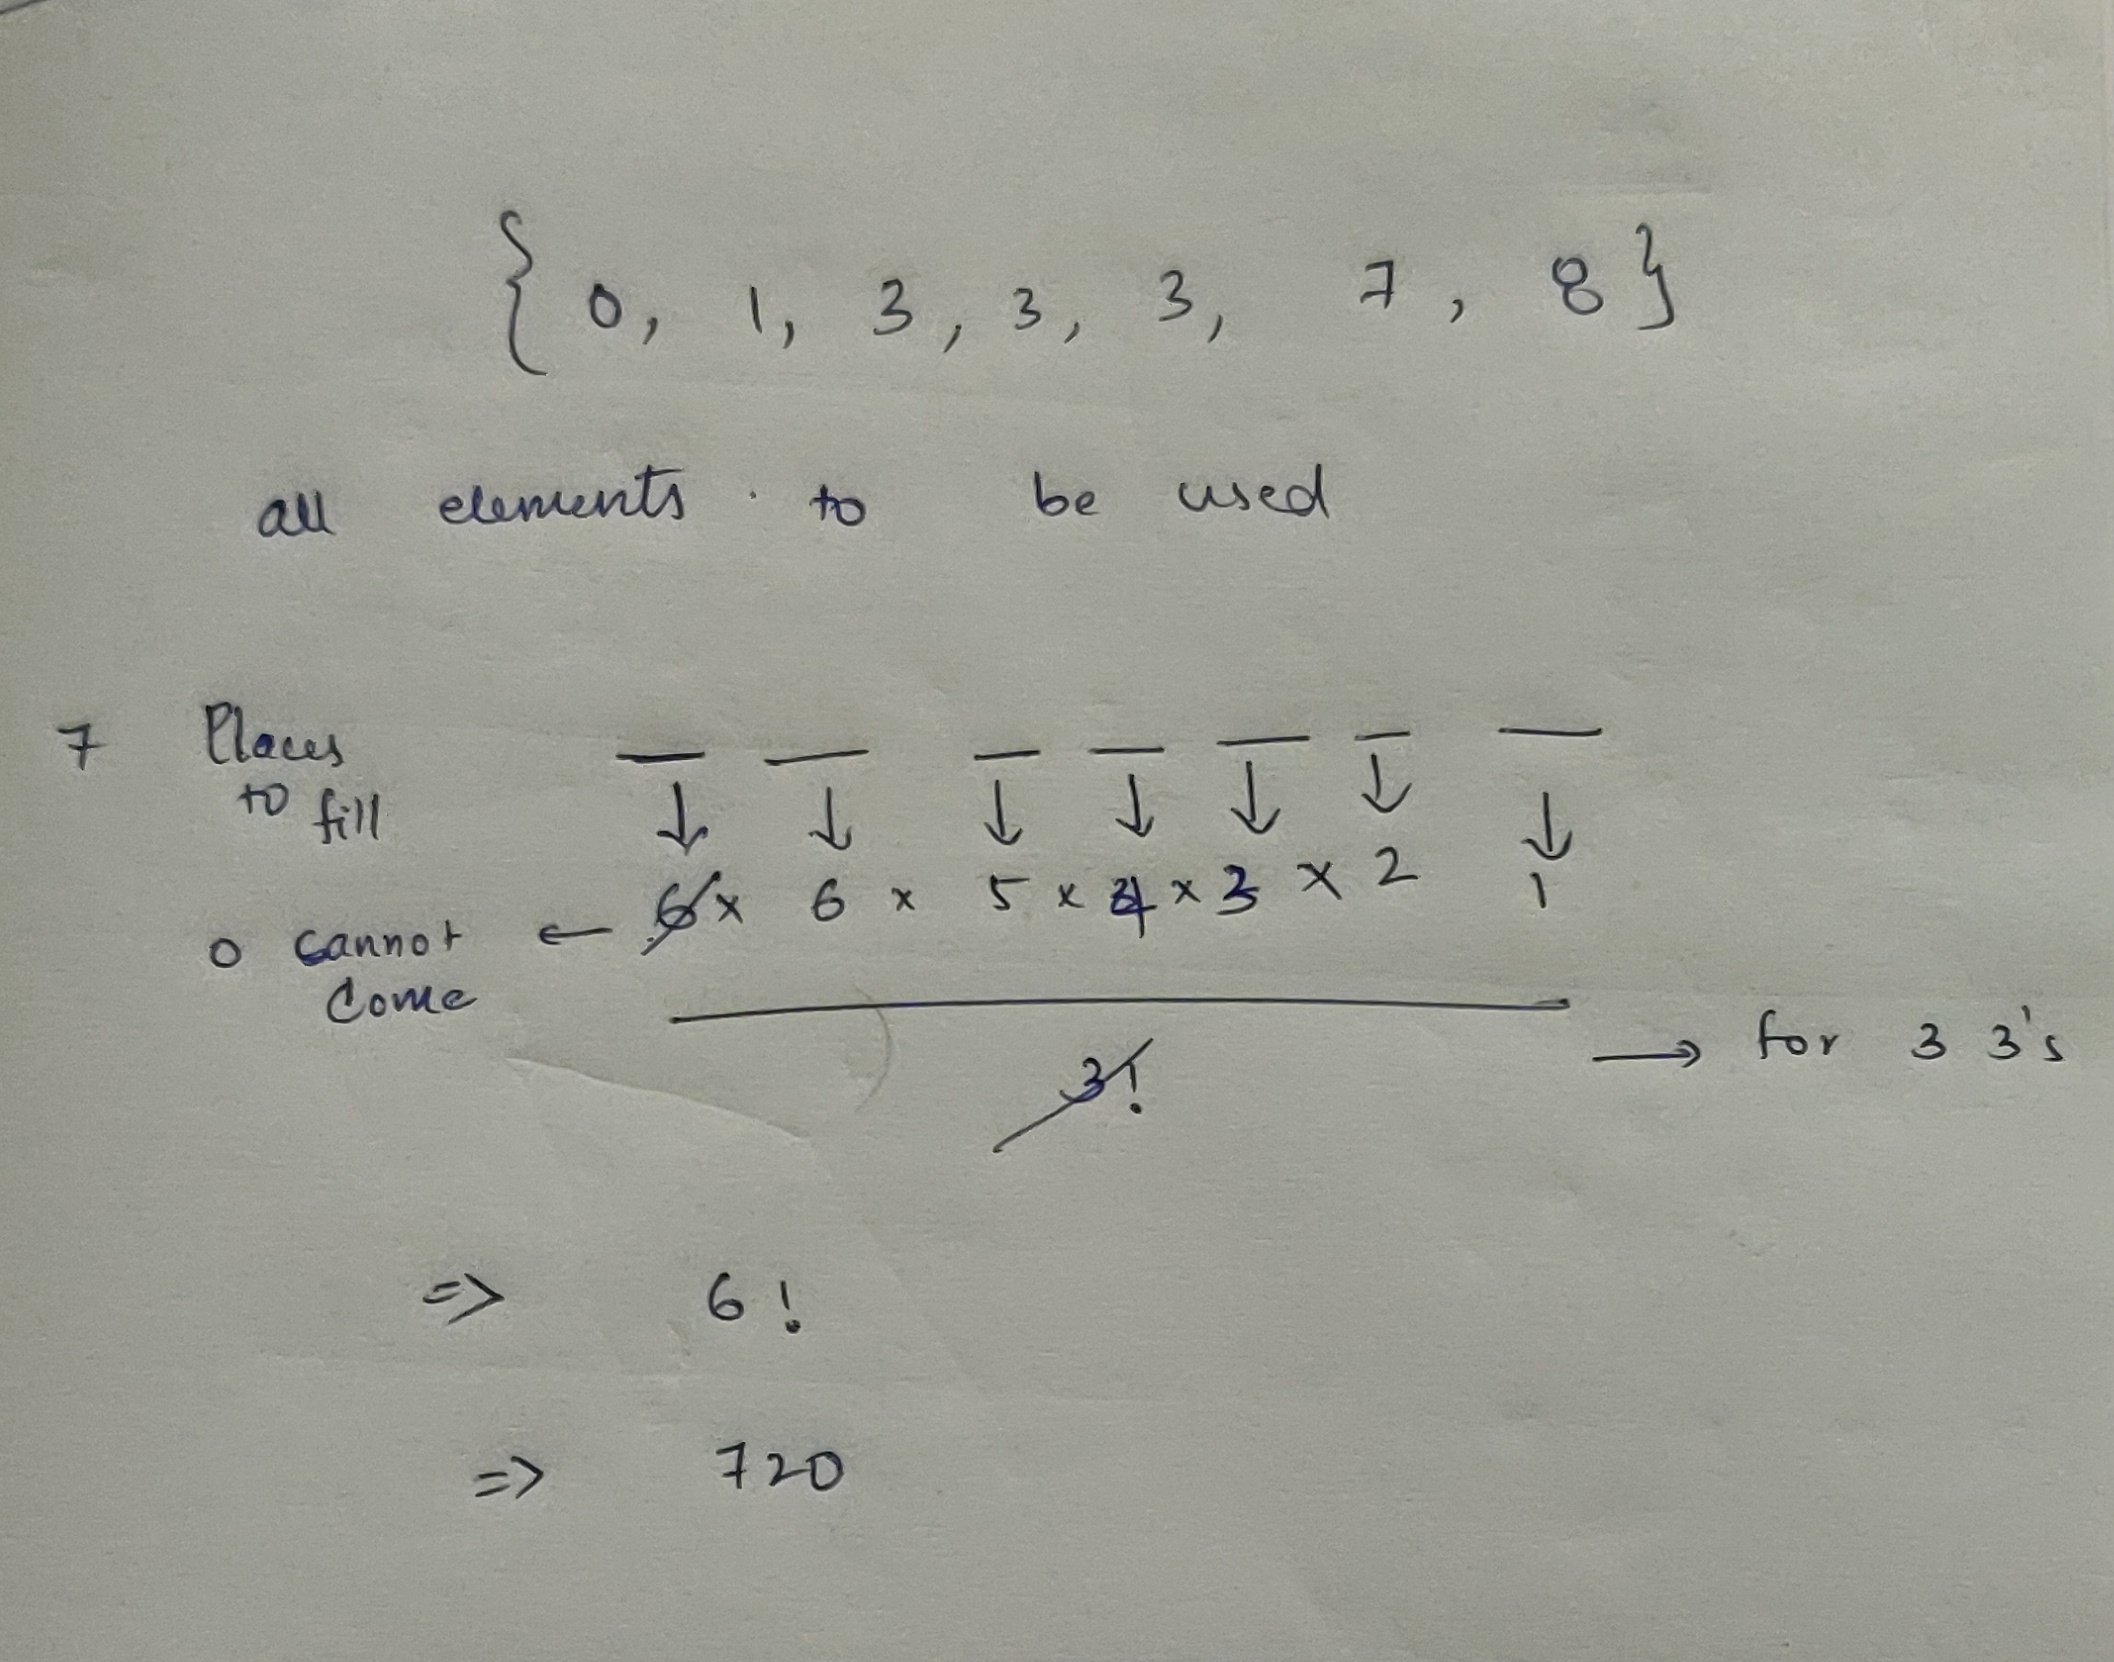 { 0, 1, 3, 3, 3, 7, 8 }
all elements to be used
7 Places
to fill
6 x 6 x 5 x 4 x 3 x 2 1
0 cannot ←
Come
3! → for 3 3's
=> 6!
=> 720